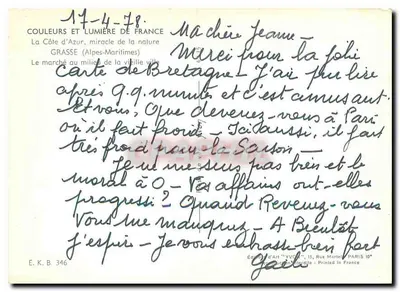 17-4-78.
COULEURS ET LUMIÈRE DE FRANCE
La Côte d'Azur, miracle de la nature
GRASSE (Alpes-Maritimes)
Le marché au milieu de la vieille ville
Ma chère Jeanne -
Merci pour la jolie
Carte de Bretagne - J'ai pu lire
après q.q. minutes et c'est amusant.
Et vous, que devenez-vous à Paris
où il fait froid - Ici aussi, il fait
très froid pour la Saison -
Je ne me sens pas bien et le
moral à O - Vos affaires ont-elles
progressé ? Quand Revenez-vous
Vous me manquez - A Bientôt
j'espère - Je vous embrasse bien fort
E. K. B. 346
Printed in France